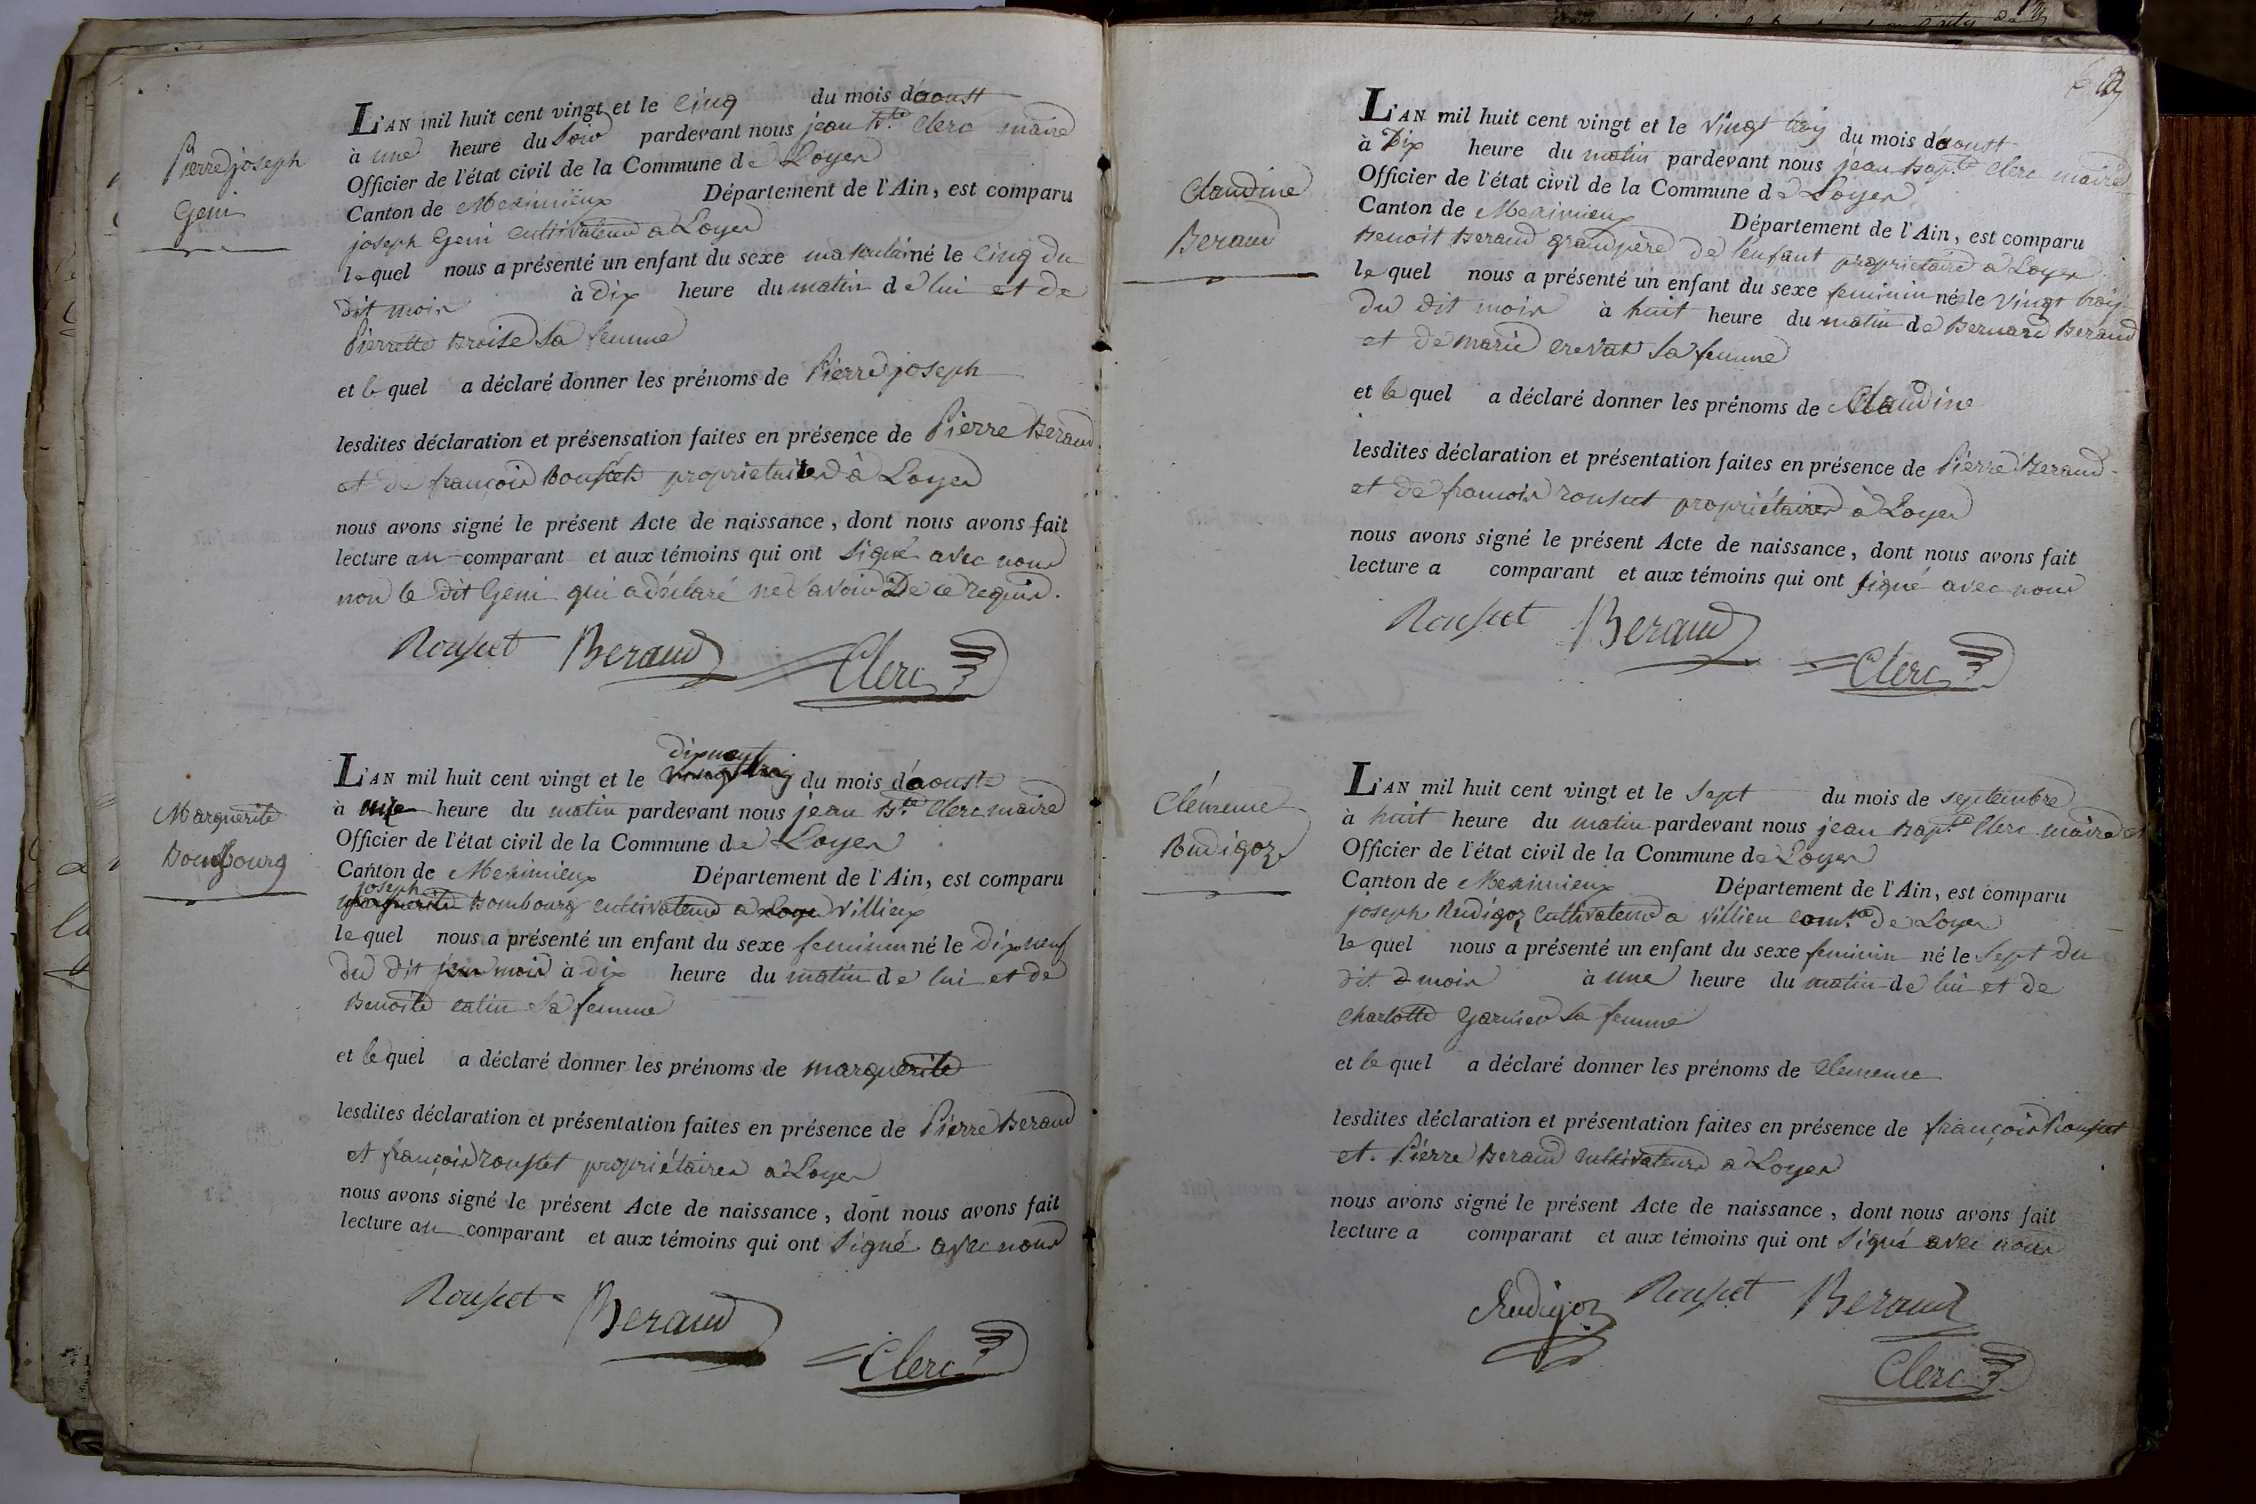 Pierre joseph
Geni
L'AN mil huit cent vingt et le Cinq du mois d'aoust
à une heure du Soir pardevant nous jean Bte Clerc maire
Officier de l'état civil de la Commune de Loyes
Canton de Meximieux Département de l'Ain, est comparu
joseph Geni cultivateur a Loyes
le quel nous a présenté un enfant du sexe masculin né le Cinq du
dit mois à dix heure du matin de lui et de
Pierrette Broise sa femme
et le quel a déclaré donner les prénoms de Pierre joseph
lesdites déclaration et présensation faites en présence de Pierre Beraud
et de françois Rousset proprietaires à Loyes
nous avons signé le présent Acte de naissance, dont nous avons fait
lecture au comparant et aux témoins qui ont signé avec nous
non le dit Geni qui a déclaré ne savoir De ce requis.
Rousset Beraud Clerc
Marguerite
Bombourg
dixneuf
L'AN mil huit cent vingt et le du mois d'aoust
à heure du matin pardevant nous jean Bte Clerc maire
Officier de l'état civil de la Commune de Loyes
Canton de Meximieux Département de l'Ain, est comparu
joseph
marguerite Bombourg cultivateur a Loyes villieux
le quel nous a présenté un enfant du sexe feminin né le Dix neuf
du dit mois à dix heure du matin de lui et de
Benoite catin sa femme
et le quel a déclaré donner les prénoms de marguerite
lesdites déclaration et présentation faites en présence de Pierre Beraud
et françois rousset propriétaires a Loyes
nous avons signé le présent Acte de naissance, dont nous avons fait
lecture au comparant et aux témoins qui ont signé avec nous
Rousset Beraud Clerc
Claudine
Beraud
L'AN mil huit cent vingt et le vingt trois du mois d'aoust
à Dix heure du matin pardevant nous jean Bapte Clerc maire
Officier de l'état civil de la Commune de Loyes
Canton de Meximieux Département de l'Ain, est comparu
Benoit Beraud grandpère de l'enfant proprietaire a Loyes
le quel nous a présenté un enfant du sexe feminin né le vingt trois
du dit mois à huit heure du matin de Bernard Beraud
et de marie crevat sa femme
et le quel a déclaré donner les prénoms de Claudine
lesdites déclaration et présentation faites en présence de Pierre Beraud
et de francois rousset propriétaires à Loyes
nous avons signé le présent Acte de naissance, dont nous avons fait
lecture a comparant et aux témoins qui ont signé avec nous
Rousset Beraud Clerc
Clémence
Rudigoz
L'AN mil huit cent vingt et le sept du mois de septembre
à huit heure du matin pardevant nous jean Bapte Clerc maire et
Officier de l'état civil de la Commune de Loyes
Canton de Meximieux Département de l'Ain, est comparu
joseph Rudigoz Cultivateur a villieu comne de Loyes
le quel nous a présenté un enfant du sexe feminin né le sept du
dit mois à une heure du matin de lui et de
charlotte Garnier sa femme
et le quel a déclaré donner les prénoms de Clemence
lesdites déclaration et présentation faites en présence de françois Rousset
et Pierre Beraud cultivateurs a Loyes
nous avons signé le présent Acte de naissance, dont nous avons fait
lecture a comparant et aux témoins qui ont signé avec nous
Rudigoz Rousset Beraud
Clerc